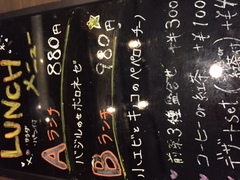 LUNCH
メニュー
サラダ
パン付
Aランチ 880円
バジルのせボロネーゼ
Bランチ 980円
小エビとキノコのペペロンチーノ
前菜3種盛合せ +¥300
コーヒーor紅茶 +¥100
デザートSet( +¥4